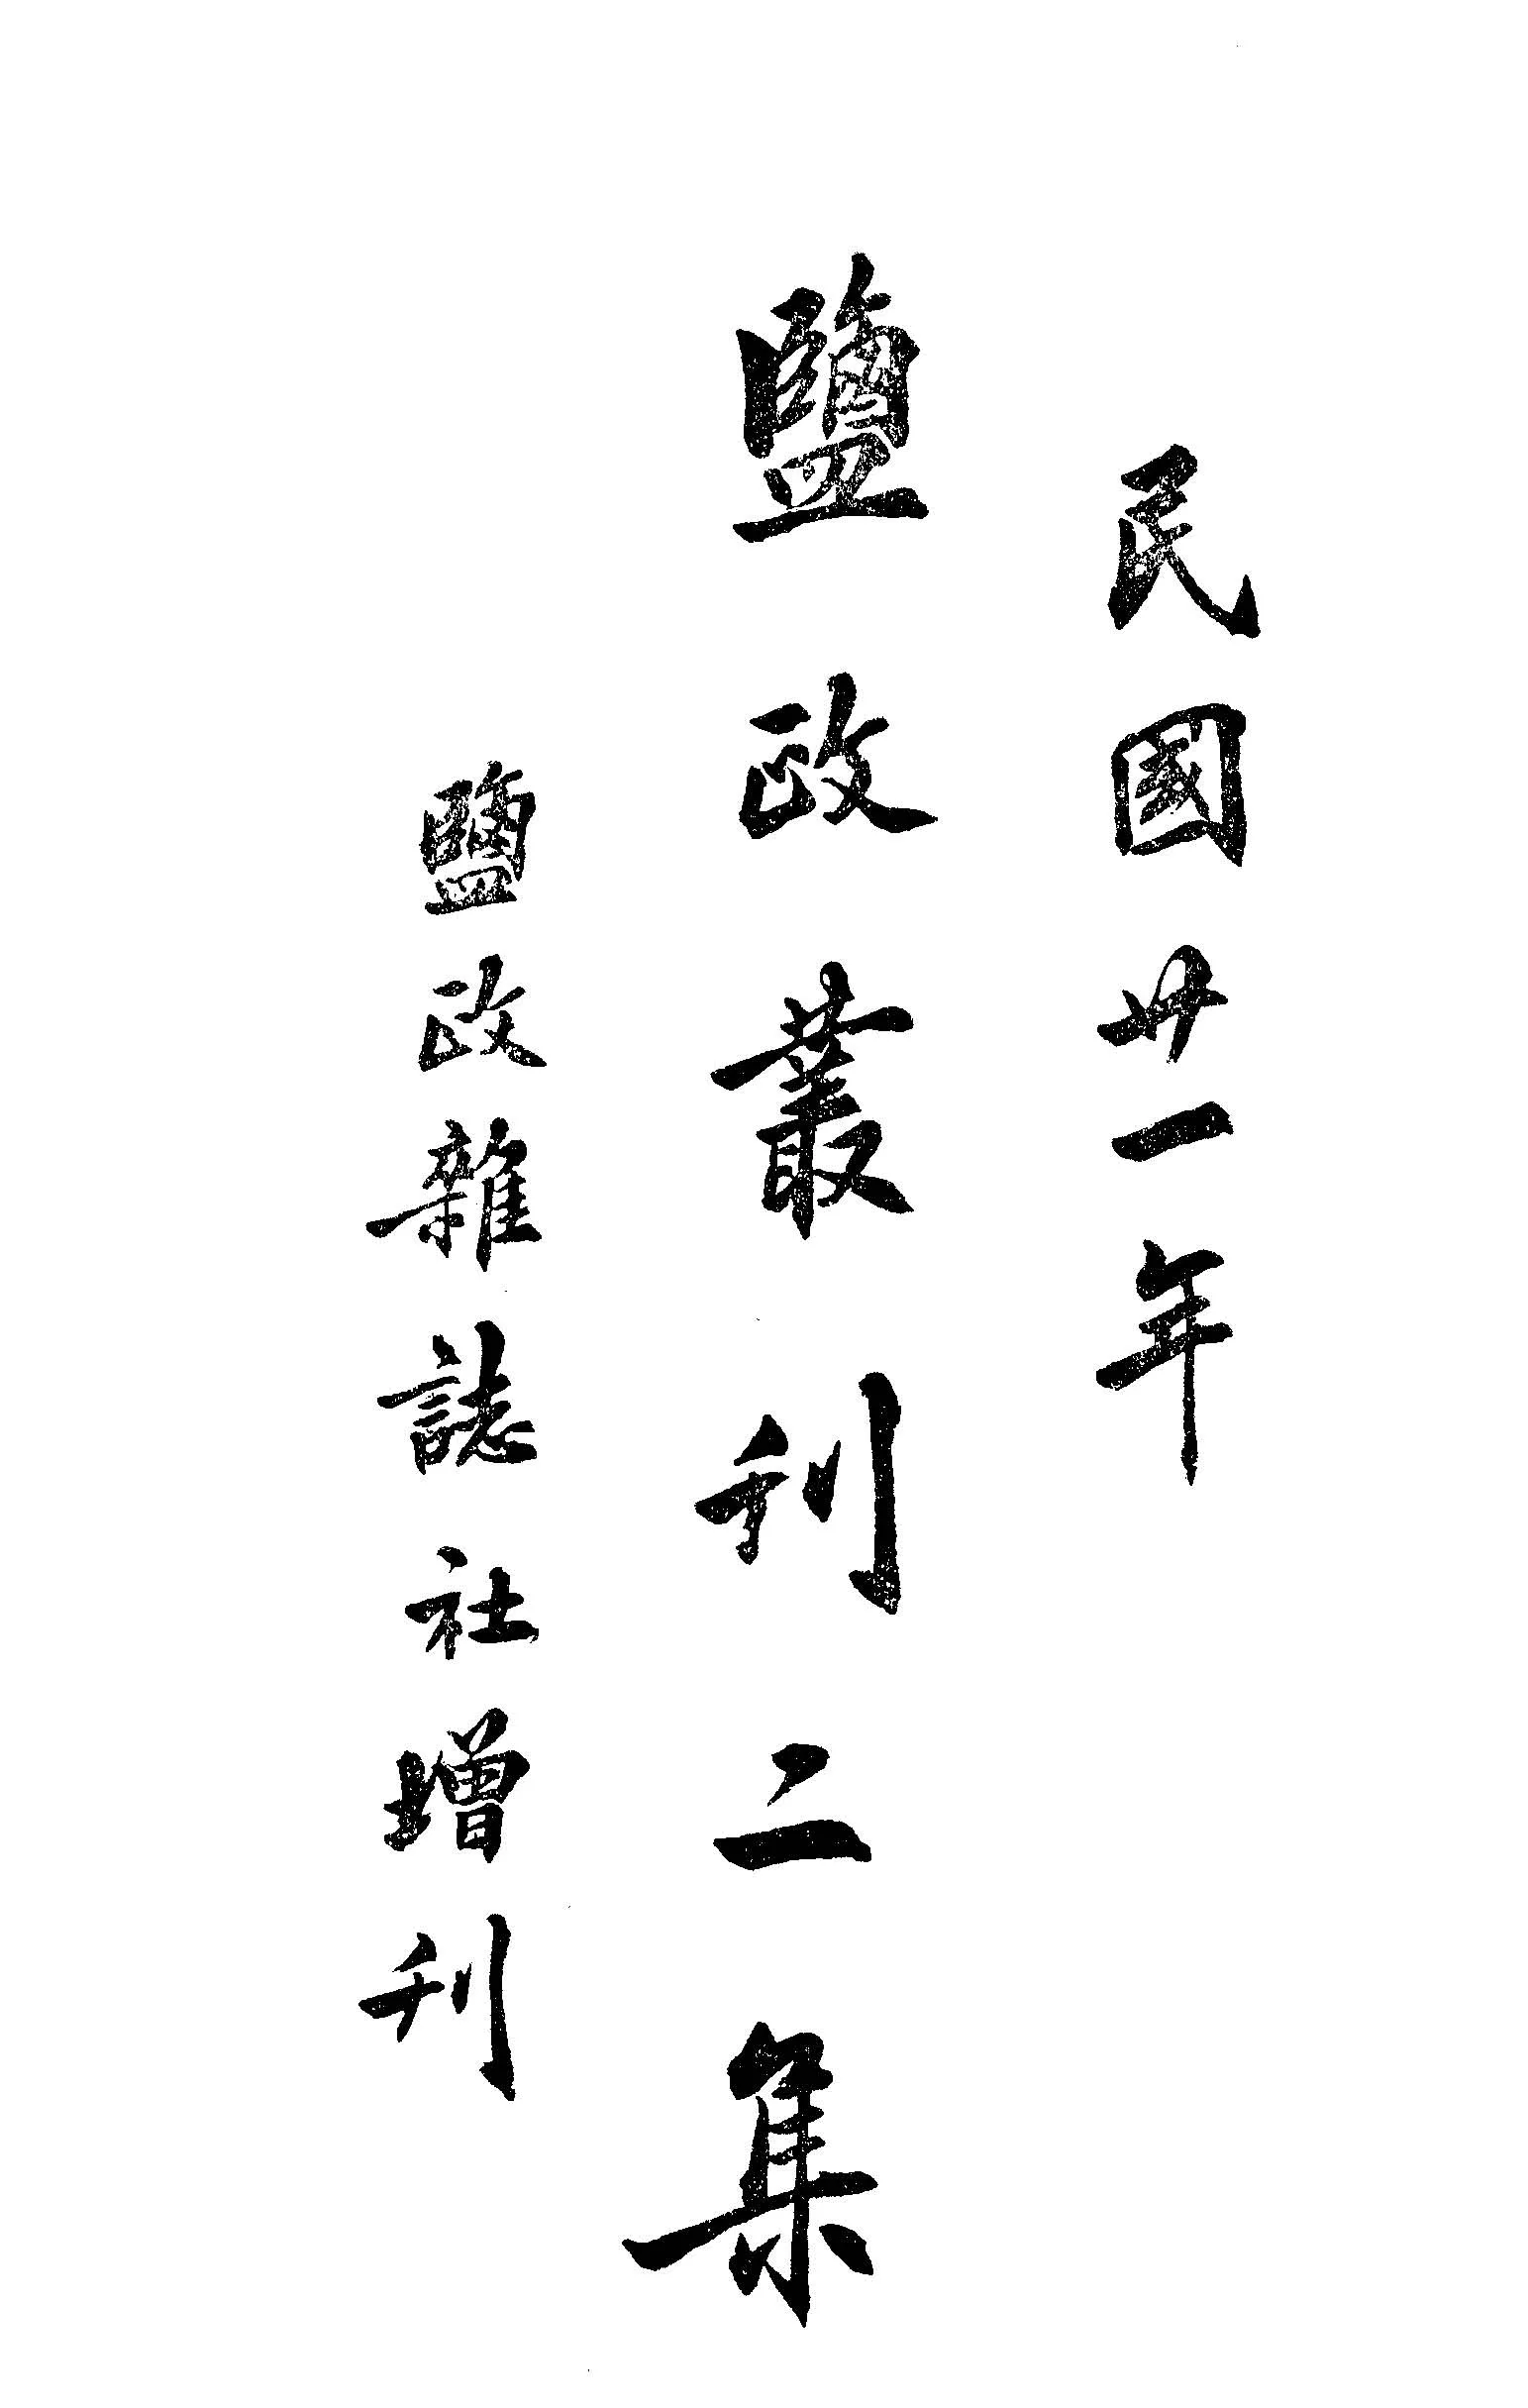 民國廿一年
鹽政叢刊二集
鹽政雜誌社增刊